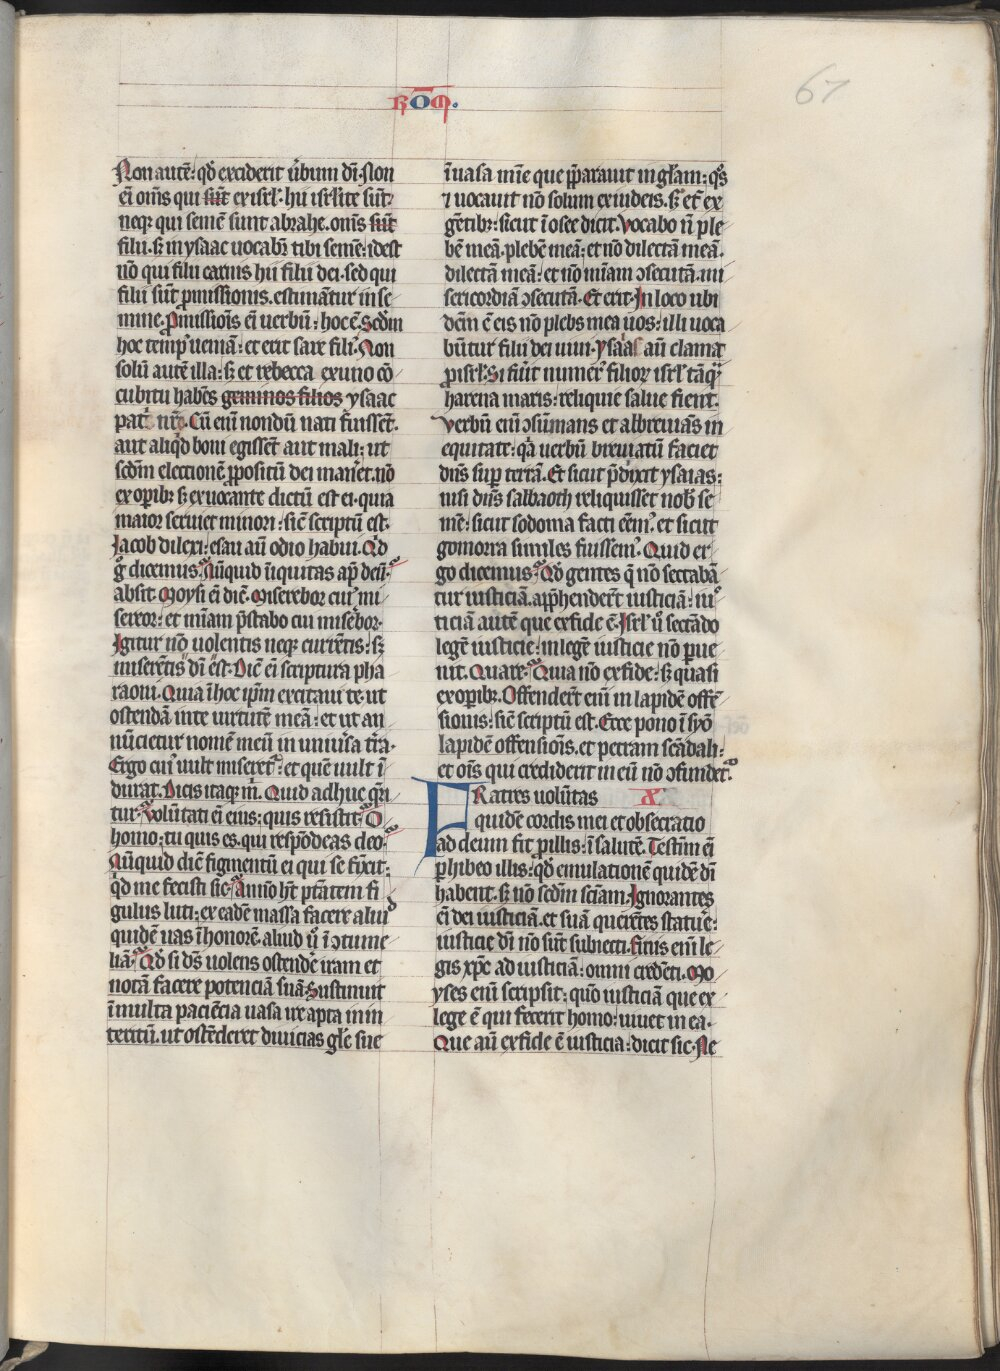 ROM.
67
Non autē: qd̓ exciderit ủbum dī. Non
eī om̄s qui sūt ex isrl̓. hii isrl̓ite sūt:
neq; qui semē sunt abrahe. om̄s sūt
filii. sꝫ in ysaac uocab̓r tibi semē: idest
nō qui filii carnis hii filii dei. sed qui
filii sūt ꝓmissionis. estimātur in se
mine. Ꝓmissiōis eī uerbū: hoc ē. Scdm̄
hoc temp̓ ueniā: et erit sare fili̓. Non
solū autē illa: sꝫ et rebecca ex uno cō
cubitu habēs geminos filios ysaac
pat̓ nr̄i. Cū enī nondū nati fuissēt.
aut aliqd̓ boni egissēt aut mali: ut
scdm̄ electionē ꝓpositū dei man̓et. nō
ex oꝑibꝫ sꝫ ex uocante dictū est ei. quia
maior seruiet minori: sic̄ scriptū est.
Iacob dilexi: esau aū odio habui. Qd̓
g̓ dicemus. Nūquid iniquitas ap̄ deū.
absit. Moysi eī dic̄. Miserebor cui̓ mi
sereor: et mīam p̄stabo cui mis̓ebor.
Igitur nō uolentis neq; currētis: sꝫ
miserētis dī est. Dic̄ eī scriptura pha
raoni. Quia ī hoc ip̄m excitaui te. ut
ostendā in te uirtutē meā: et ut an
nūcietur nomē meū in uniu̓sa tr̄a.
Ergo cui̓ uult miseret̓: et quē uult ī
durat. Dicis itaq; m̄. Quid adhuc q̓ri
tur. Volūtati eī eius: quis resistit. O
homo: tu quis es. qui respōdeas deo.
Nūquid dic̄ figmentū ei qui se fīxit:
qd̓ me fecisti sic. Annō h̄t pt̄atem fi
gulus luti: ex eadē massa facere aliud
quidē uas ī honorē. aliud u̓ ī ꝯtume
liā. Qd̓ si dꝫ uolens ostendē iram et
notā facere potenciā suā. Sustinuit
ī multa paciēcia uasa ire apta in in
teritū. ut ostēderet diuicias gl̄e sue
ī uasa mīe que p̄parauit in gl̄am: q̓s
⁊ uocauit nō solum ex iudeis. sꝫ et̄ ex
gētibꝫ: sicut ī osee dicit. Vocabo n̄ ple
bē meā. plebē meā: et nō dilectā meā.
dilectā meā: et nō mīam ꝯsecutā. mi
sericordiā ꝯsecutā. Et erit. In loco ubi
dc̄m ē eis nō plebs mea uos: illi uoca
būtur filii dei uiui. Ysaias aū clamat
ꝓ isrl̓. Si fu̓it numer̓ filioꝝ isrl̓ tāq̓
harena maris: reliquie salue fient.
Verbū enī ꝯsūmans et abbreuiās in
equitate: q̓a uerbū breuiatū faciet
dn̄s suꝑ terrā. Et sicut p̄dixit ysaias:
nisi dn̄s sabaoth reliquisset nob̓ se
mē: sicut sodoma facti eēm̓. et sicut
gomorra similes fuissem̓. Quid er
go dicemus. Qd̓ gentes q̄ nō sectabā
tur iusticiā. app̄henderūt iusticiā: iu
ticiā autē que ex fide ē. Isrl̓ u̓ sectādo
legē iusticie: in legē iusticie nō ꝑue
nit. Quare. Quia nō ex fide: sꝫ quasi
ex oꝑibꝫ. Offenderūt enī in lapidē offē
sionis: sic̄ scriptū est. Ecce pono ī syō
lapidē offensiōis. et petram scādali:
et ōis qui crediderit in eū nō ꝯfundet̓.
Fratres uolūtas X.
quidē cordis mei et obsecratio
ad deum fit ꝓ illis: ī salutē. Testīm eī
ꝑhibeo illis: qd̓ emulationē quidē dī
habent. sꝫ nō scdm̄ sciam̄. Ignorantes
eī dei iusticiā. et suā querētes statu̓e:
iusticie dī nō sūt subiecti. Finis enī le
gis xp̄c ad iusticiā: omni credēti. Mo
yses enī scripsit: quō iusticiā que ex
lege ē qui fecerit homo: uiuet in ea.
Que aū ex fide ē iusticia: dicit sic. Ne